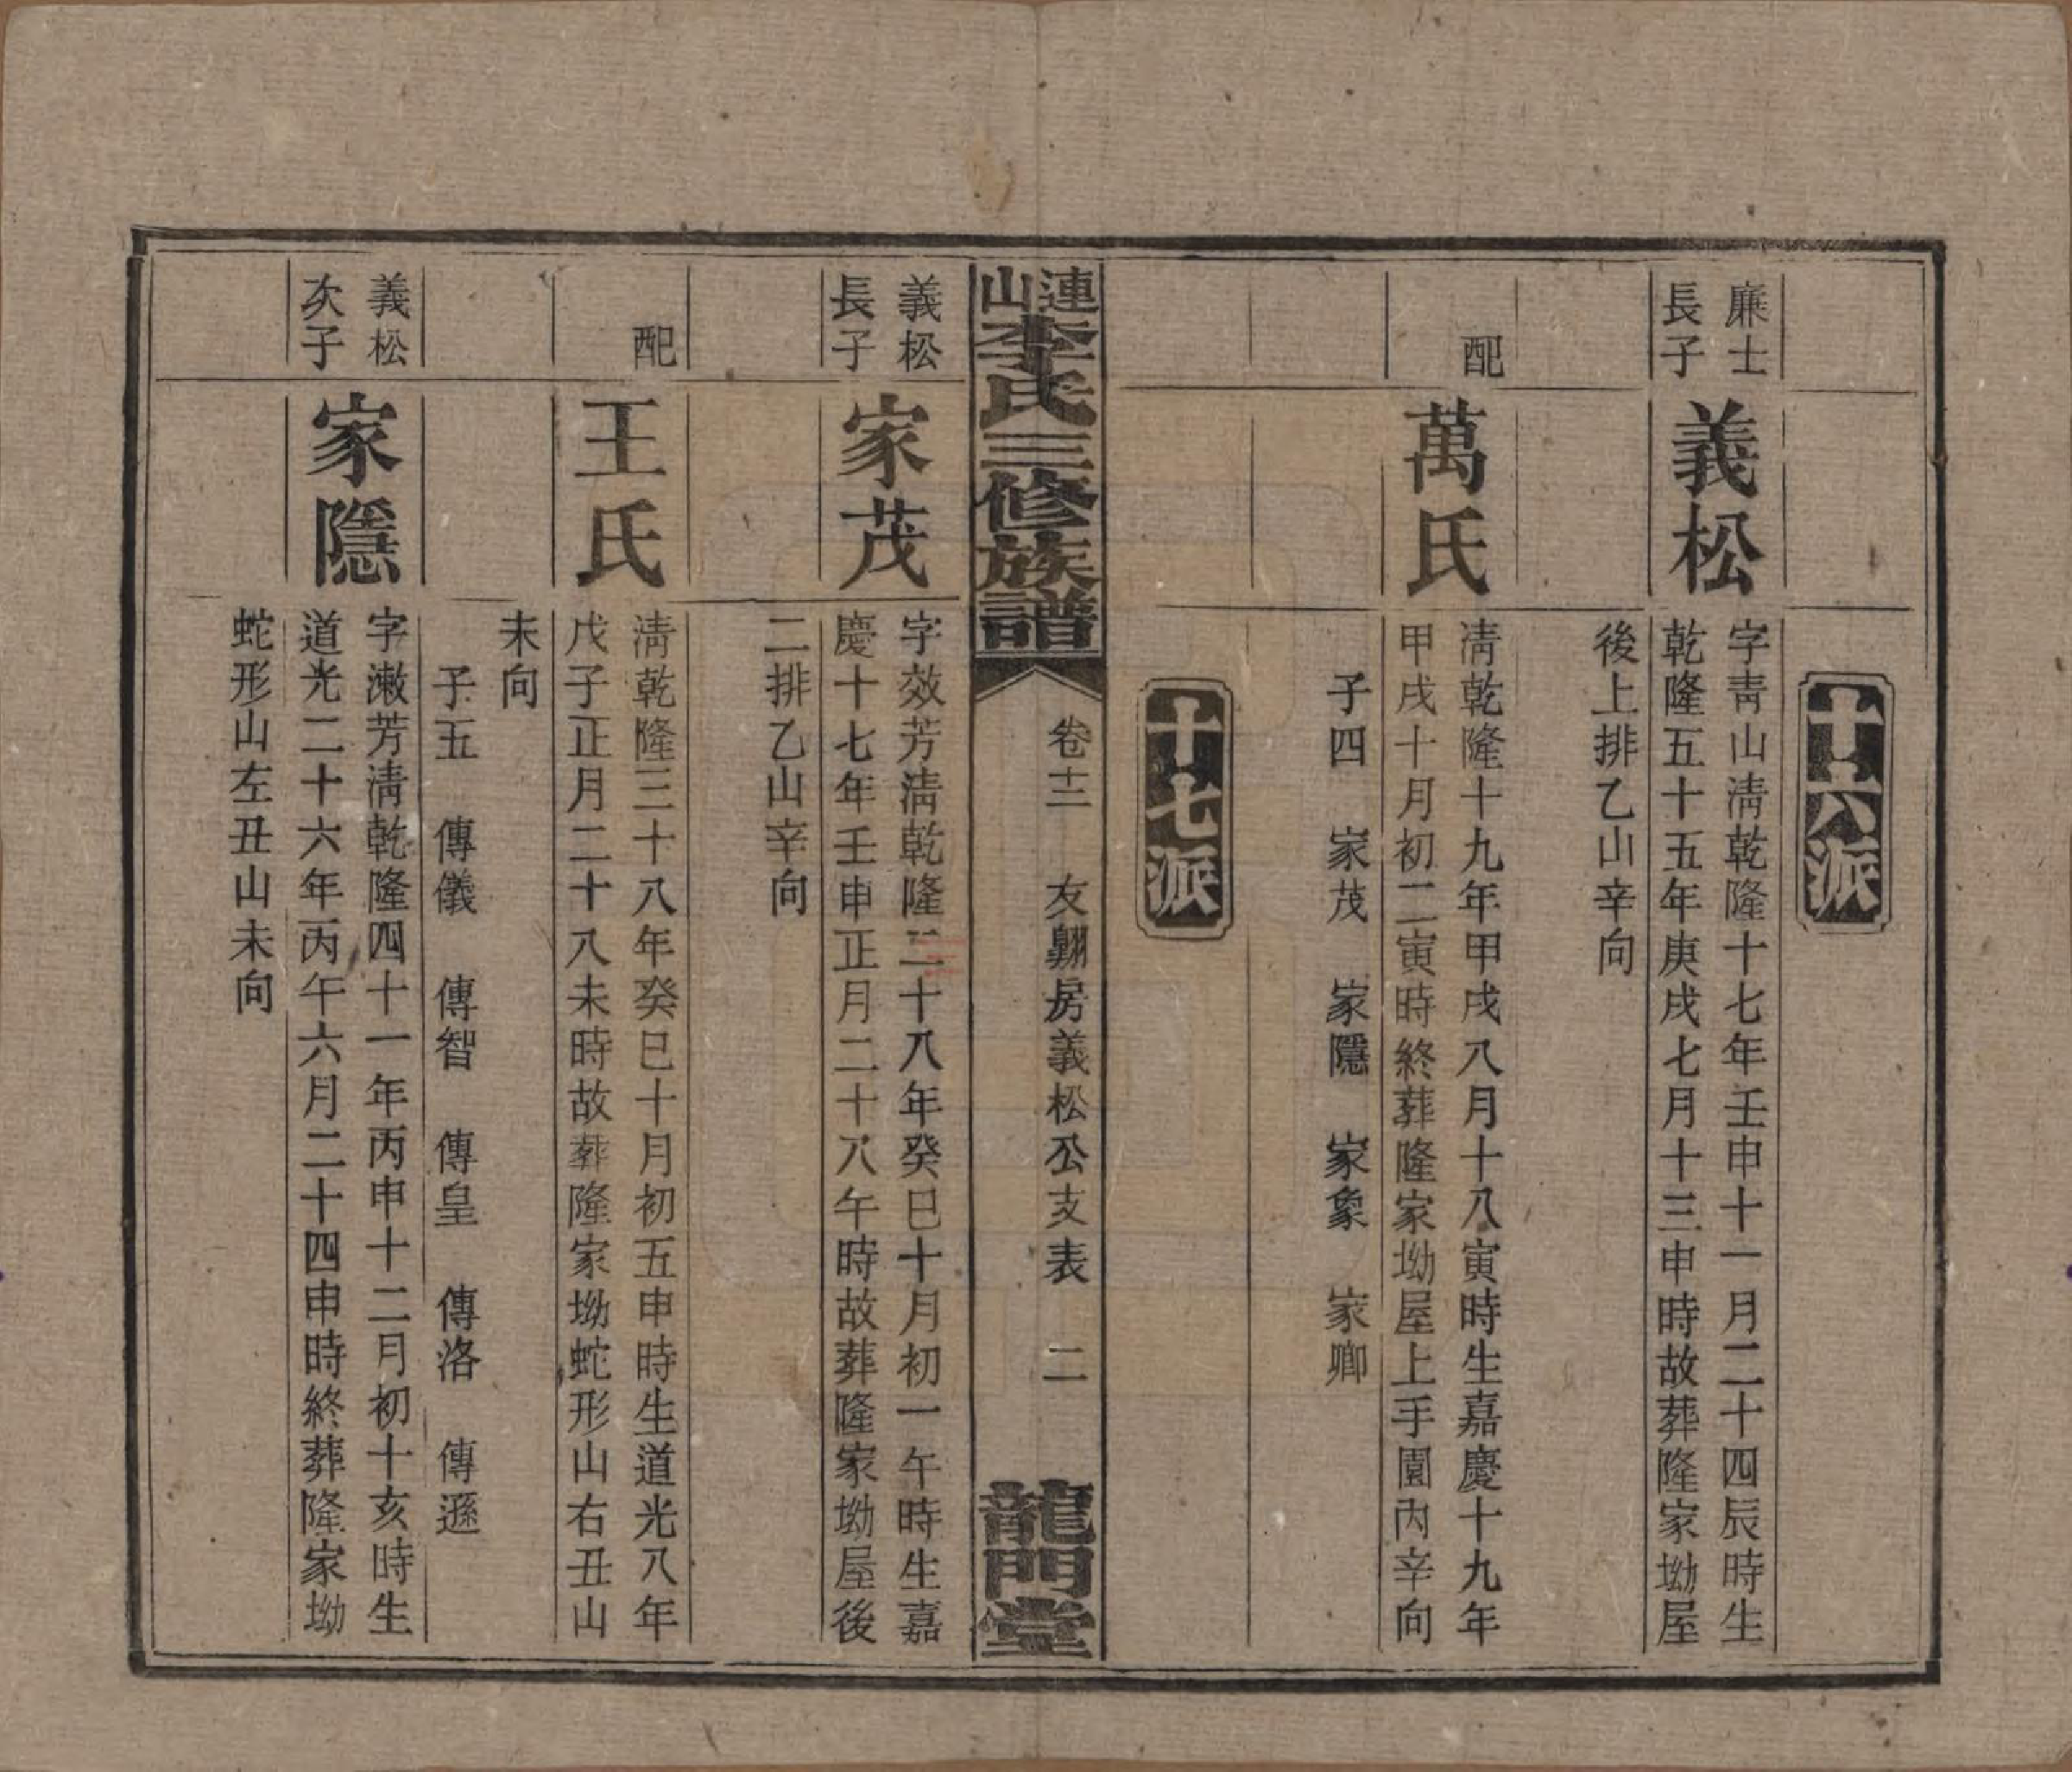 十六派
廉士
長子
義松
字靑山淸乾隆十七年壬申十一月二十四辰時生
乾隆五十五年庚戌七月十三申時故葬隆家坳屋
後上排乙山辛向
配
萬氏
淸乾隆十九年甲戌八月十八寅時生嘉慶十九年
甲戌十月初二寅時終葬隆家坳屋上手園內辛向
子四 家茂 家隱 家象 家卿
十七派
連山李氏三修族譜
卷十三 友翺房義松公支表 二
龍門堂
義松
長子
家茂
字效芳淸乾隆三十八年癸巳十月初一午時生嘉
慶十七年壬申正月二十八午時故葬隆家坳屋後
二排乙山辛向
配
王氏
淸乾隆三十八年癸巳十月初五申時生道光八年
戊子正月二十八未時故葬隆家坳蛇形山右丑山
未向
子五 傳儀 傳智 傳皇 傳洛 傳遜
義松
次子
家隱
字漱芳淸乾隆四十一年丙申十二月初十亥時生
道光二十六年丙午六月二十四申時終葬隆家坳
蛇形山左丑山未向